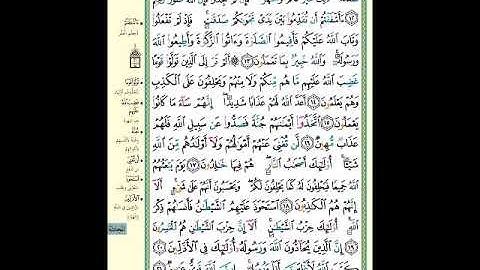 ١٢ ءَأَشْفَقْتُمْ أَن تُقَدِّمُوا بَيْنَ يَدَىْ نَجْوَىٰكُمْ صَدَقَـٰتٍ ۚ فَإِذْ لَمْ تَفْعَلُوا
وَتَابَ ٱللَّهُ عَلَيْكُمْ فَأَقِيمُوا ٱلصَّلَوٰةَ وَءَاتُوا ٱلزَّكَوٰةَ وَأَطِيعُوا ٱللَّهَ
وَرَسُولَهُۥ ۚ وَٱللَّهُ خَبِيرٌۢ بِمَا تَعْمَلُونَ ١٣ أَلَمْ تَرَ إِلَى ٱلَّذِينَ تَوَلَّوْا قَوْمًا
غَضِبَ ٱللَّهُ عَلَيْهِم مَّا هُم مِّنكُمْ وَلَا مِنْهُمْ وَيَحْلِفُونَ عَلَى ٱلْكَذِبِ
وَهُمْ يَعْلَمُونَ ١٤ أَعَدَّ ٱللَّهُ لَهُمْ عَذَابًا شَدِيدًا ۖ إِنَّهُمْ سَآءَ مَا كَانُوا
يَعْمَلُونَ ١٥ ٱتَّخَذُوٓا أَيْمَـٰنَهُمْ جُنَّةً فَصَدُّوا عَن سَبِيلِ ٱللَّهِ فَلَهُمْ
عَذَابٌ مُّهِينٌ ١٦ لَّن تُغْنِىَ عَنْهُمْ أَمْوَٰلُهُمْ وَلَآ أَوْلَـٰدُهُم مِّنَ ٱللَّهِ
شَيْـًٔا ۚ أُو۟لَـٰٓئِكَ أَصْحَـٰبُ ٱلنَّارِ ۖ هُمْ فِيهَا خَـٰلِدُونَ ١٧ يَوْمَ يَبْعَثُهُمُ
ٱللَّهُ جَمِيعًا فَيَحْلِفُونَ لَهُۥ كَمَا يَحْلِفُونَ لَكُمْ ۖ وَيَحْسَبُونَ أَنَّهُمْ عَلَىٰ شَىْءٍ ۚ أَلَآ
إِنَّهُمْ هُمُ ٱلْكَـٰذِبُونَ ١٨ ٱسْتَحْوَذَ عَلَيْهِمُ ٱلشَّيْطَـٰنُ فَأَنسَىٰهُمْ ذِكْرَ
ٱللَّهِ ۚ أُو۟لَـٰٓئِكَ حِزْبُ ٱلشَّيْطَـٰنِ ۚ أَلَآ إِنَّ حِزْبَ ٱلشَّيْطَـٰنِ هُمُ ٱلْخَـٰسِرُونَ
١٩ إِنَّ ٱلَّذِينَ يُحَآدُّونَ ٱللَّهَ وَرَسُولَهُۥٓ أُو۟لَـٰٓئِكَ فِى ٱلْأَذَلِّينَ ٢٠
كَتَبَ ٱللَّهُ لَأَغْلِبَنَّ أَنَا۠ وَرُسُلِىٓ ۚ إِنَّ ٱللَّهَ قَوِىٌّ عَزِيزٌ ٢١